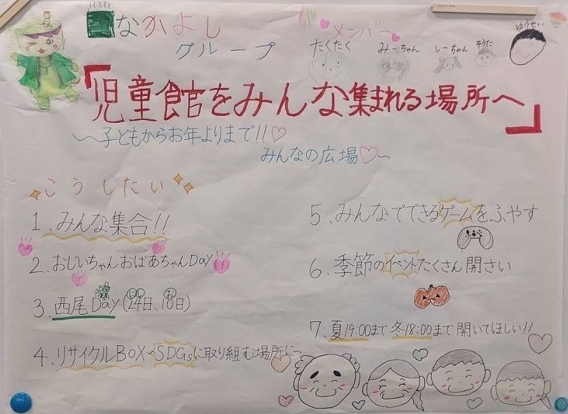 なかよし
グループ
メンバー
たくたく みーちゃん しーちゃん そうた ほうせい
「児童館をみんな集まれる場所へ」
～子どもからお年よりまで!!♡
みんなの広場♡～
こうしたい
1、みんな集合!!
2、おじいちゃんおばあちゃんDAY
3、西尾DAY(24日、10日)
4、リサイクルBOX～SDGsに取り組む場所に～
5、みんなでできるゲームをふやす
6、季節のイベントたくさん開さい
7、夏19:00まで 冬18:00まで開いてほしい!!